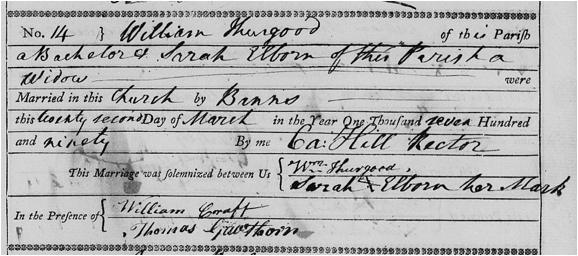 No. 14 } William Thurgood of this Parish
a Bachelor & Sarah Elborn of this Parish a
Widow were
Married in this Church by Banns
this twenty second Day of March in the Year One Thousand seven Hundred
and ninety By me Ca: Hill Rector
This Marriage was solemnized between Us { Wm Thurgood,
Sarah X Elborn her Mark
In the Presence of { William Craft
Thomas Gawthorn